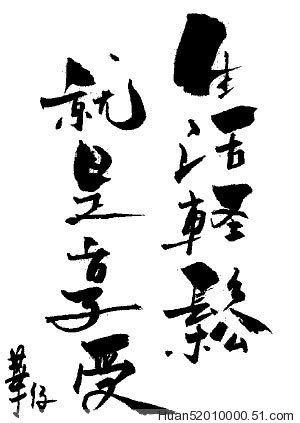 生活輕鬆
就是享受
華仔
Huan52010000.51.com